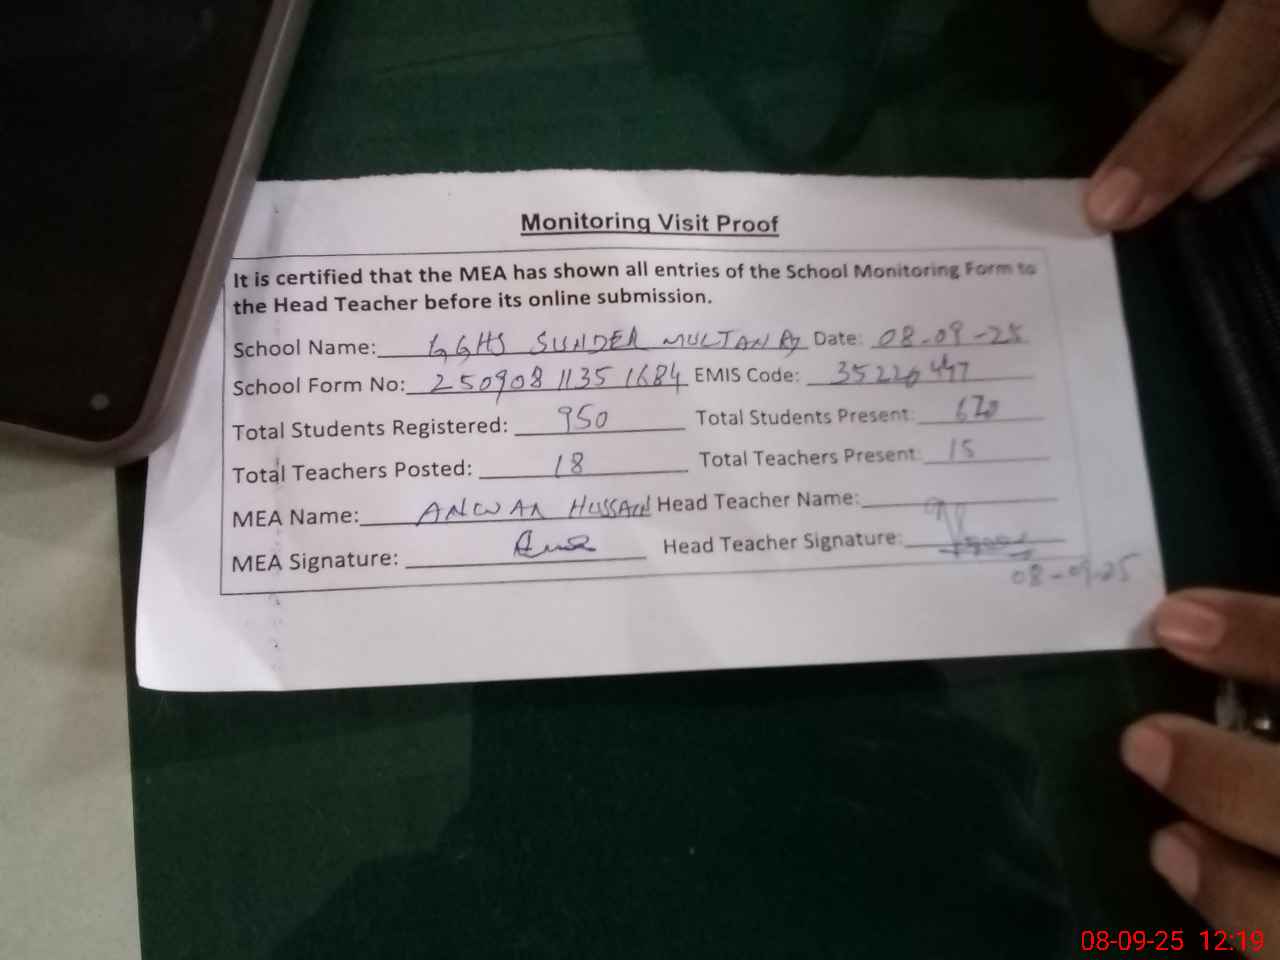 Monitoring Visit Proof
It is certified that the MEA has shown all entries of the School Monitoring Form to
the Head Teacher before its online submission.
School Name: GGHS SUNDER MULTAN Rd Date: 08-09-25
School Form No: 250908 1135 1684 EMIS Code:
Total Students Registered: 950 Total Students Present:
Total Teachers Posted: 18 Total Teachers Present: 15
MEA Name: ANWAR HUSSAIN Head Teacher Name:
MEA Signature: Head Teacher Signature:
08-09-25
08-09-25 12:19